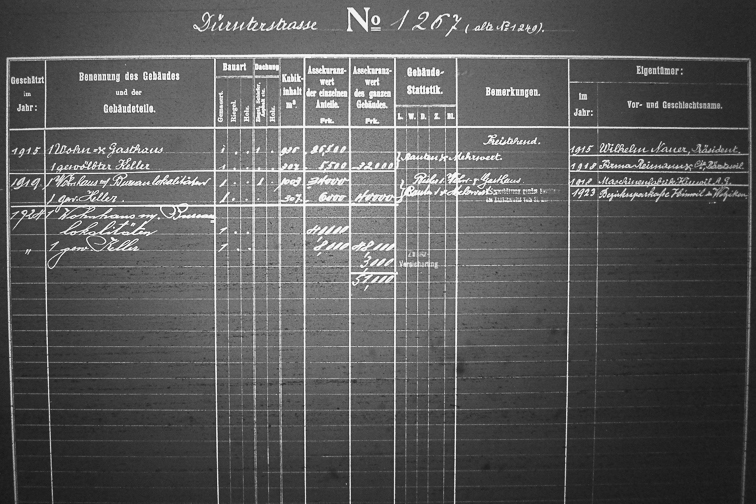 Dürnterstrasse No 1267 (alte No 1249).
Geschätzt im Jahr: Benennung des Gebäudes und der Gebäudeteile. Bauart Dachung Kubikinhalt m³. Assekuranzwert der einzelnen Anteile. Frk. Assekuranzwert des ganzen Gebäudes. Frk. Gebäude-Statistik. Bemerkungen. Eigentümer:
Gemauert. Riegel. Holz. Holz. L. W. B. Z. Bl. Im Jahr: Vor- und Geschlechtsname.
Freistehend.
1915 1 Wohn & Gasthaus 1 1 1915 Wilhelm Nauer, Präsident
1 gewölbter Keller 1 5500 32000 Bauten & Mehrwert 1918 Firma Reimann &
1919 1 Wohnhaus m/ Bureaulokalitäten 1 1 34000 Wohn & Gasthaus 1918 Maschinenfabrik Hinwil A.G.
1 gew. Keller 1 307 6000 40000 1923 Bezirkssparkasse Hinwil in Wetzikon
1924 1 Wohnhaus m. Bureau
lokalitäten 1 40000
„ 1 gew. Keller 1 8000 48000
3000 Versicherung
51000